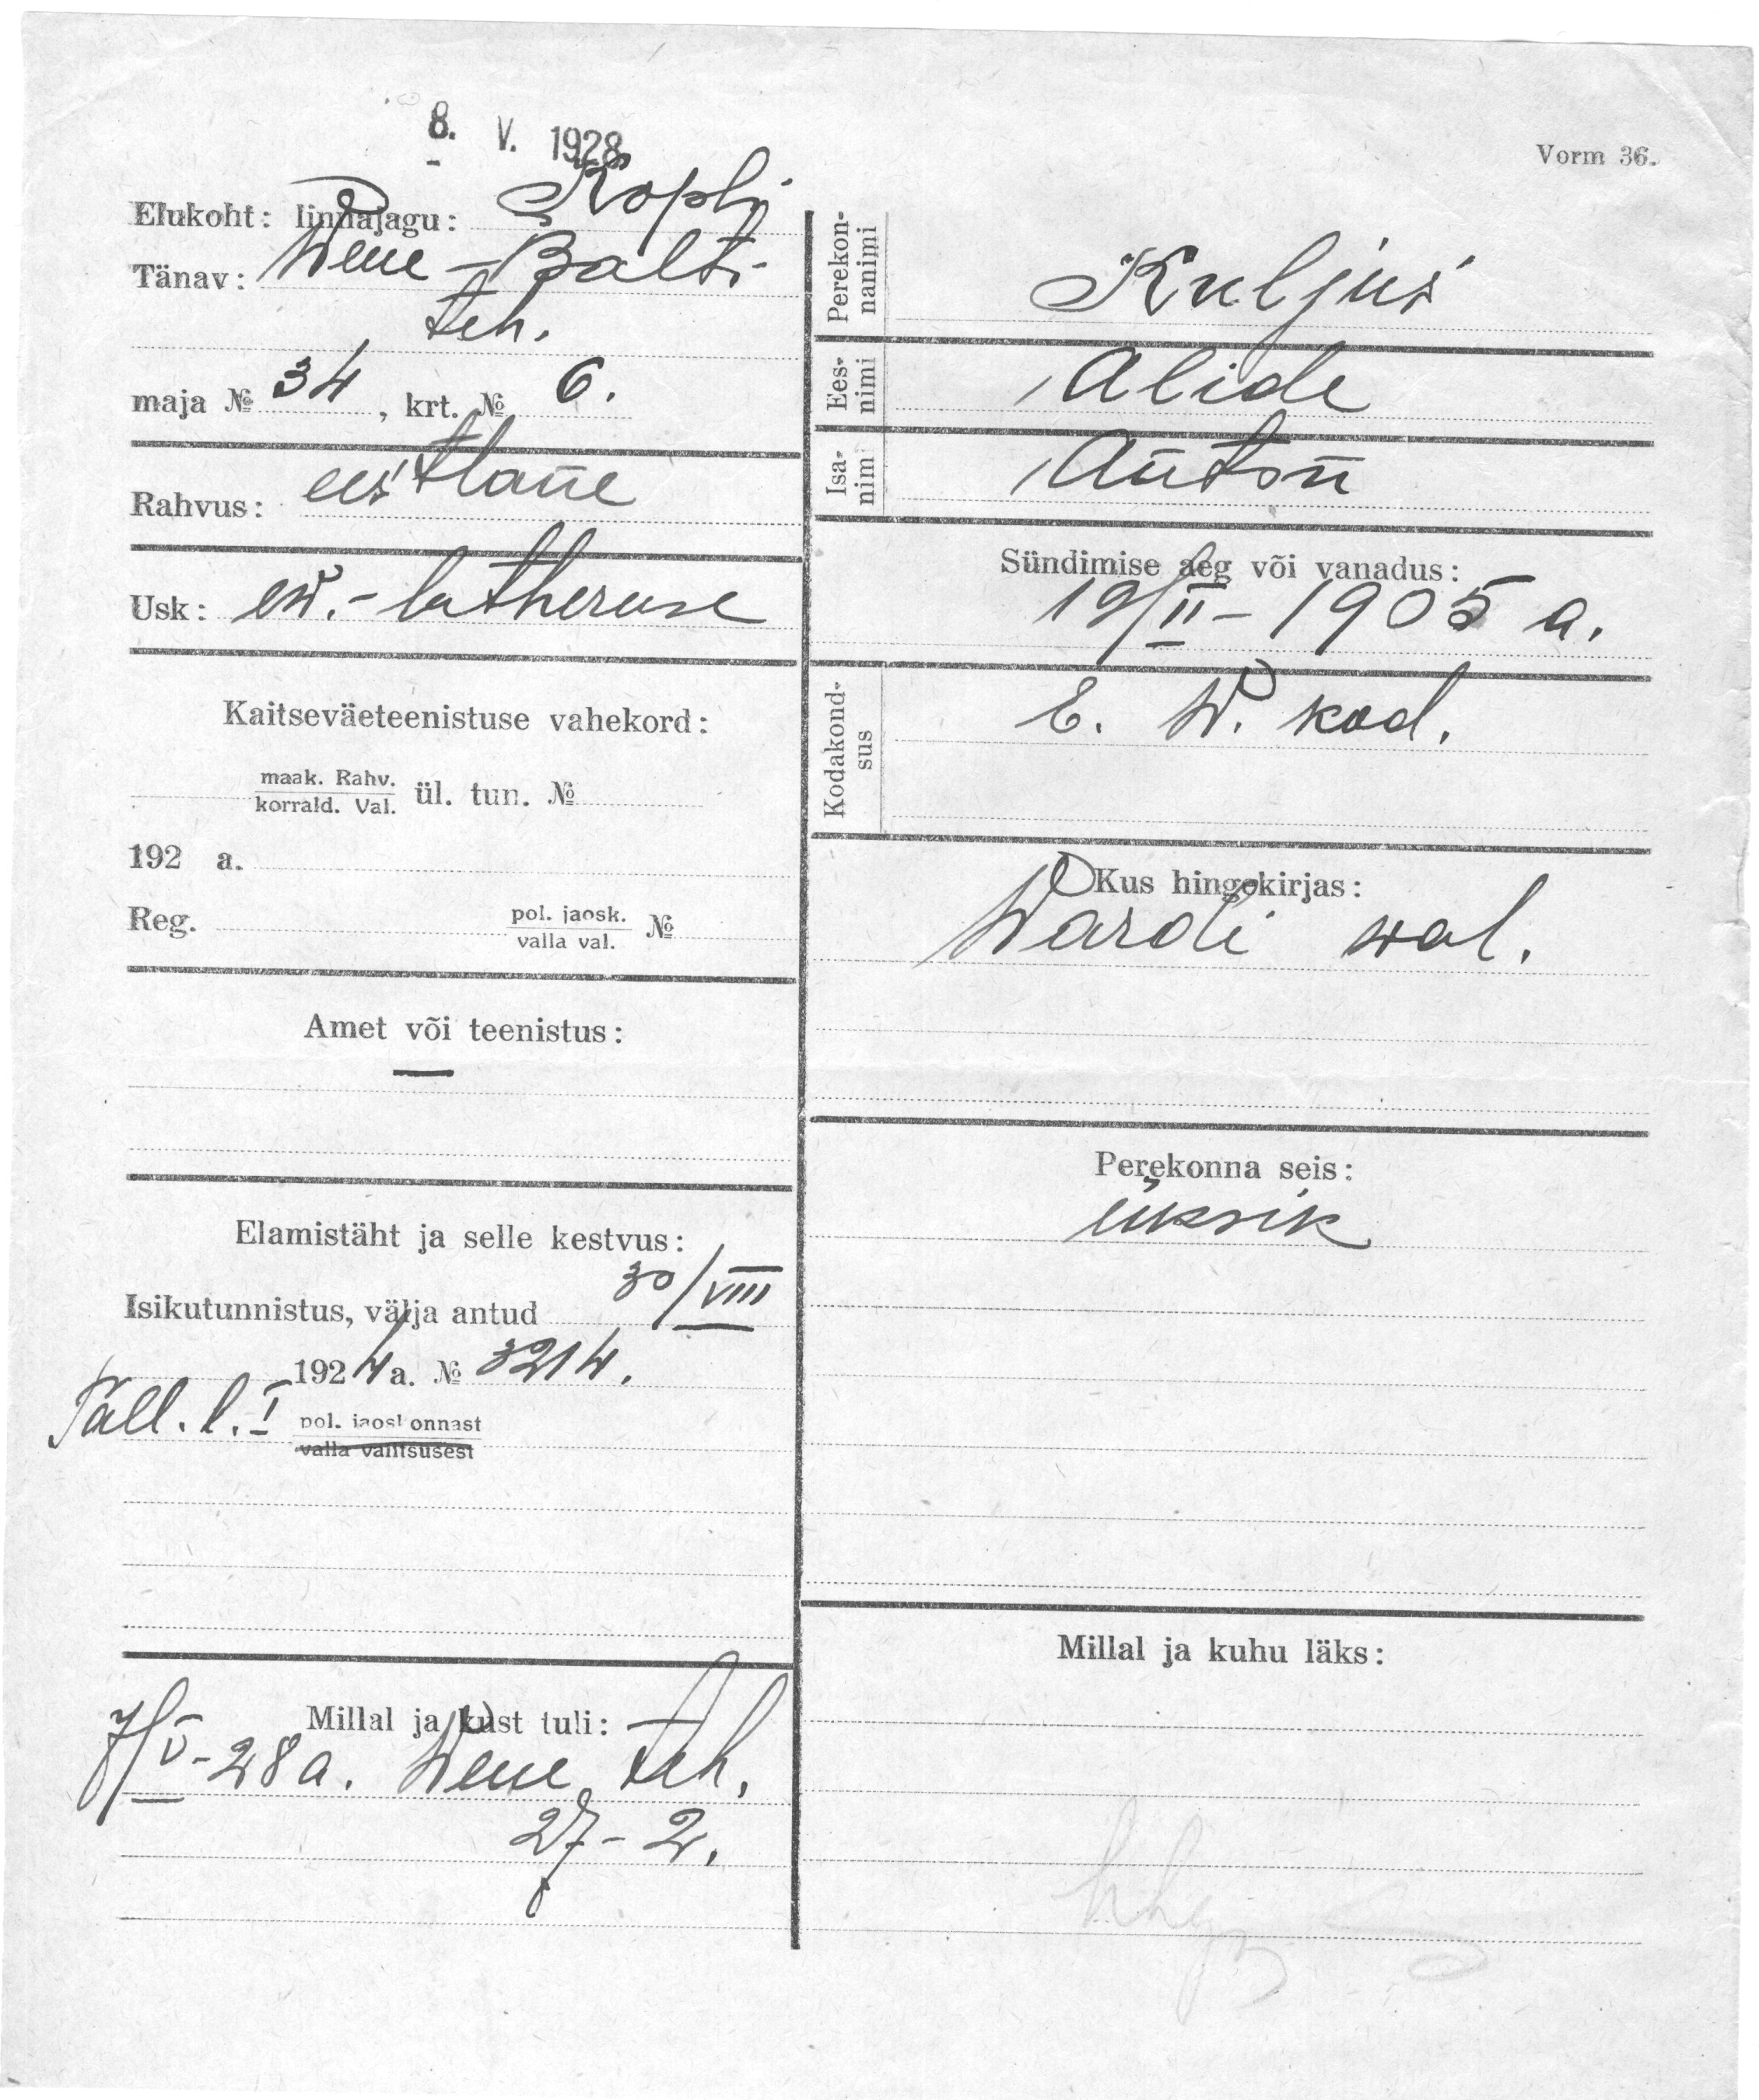 8. V. 1928
Vorm 36.
Elukoht: linnajagu: Kopli
Tänav: Wene-Balti
teh.
maja № 34, krt. № 6.
Rahvus: eestlane
Usk: ew.-lutheruse
Kaitseväeteenistuse vahekord:
maak. Rahv.
korrald. Val. ül. tun. №
192 a.
Reg. pol. jaosk.
valla val. №
Amet või teenistus:
—
Elamistäht ja selle kestvus:
Isikutunnistus, välja antud 30/VIII
1924 a. № 3214.
Tall. l. I pol. jaoskonnast
valla valitsusest
Millal ja kust tuli:
7/V-28 a. Wene teh.
27-2.
Perekon-
nanimi
Kuljus
Ees-
nimi
Alide
Isa-
nimi
Anton
Sündimise aeg või vanadus:
19/II-1905 a.
Kodakond-
sus
E. W. kod.
Kus hingekirjas:
Wardi wal.
Perekonna seis:
üksik
Millal ja kuhu läks: